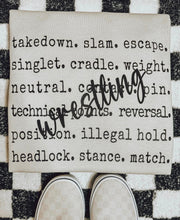 takedown. slam. escape.
singlet. cradle. weight.
neutral. contact. pin.
technique. points. reversal.
wrestling
position. illegal hold.
headlock. stance. match.